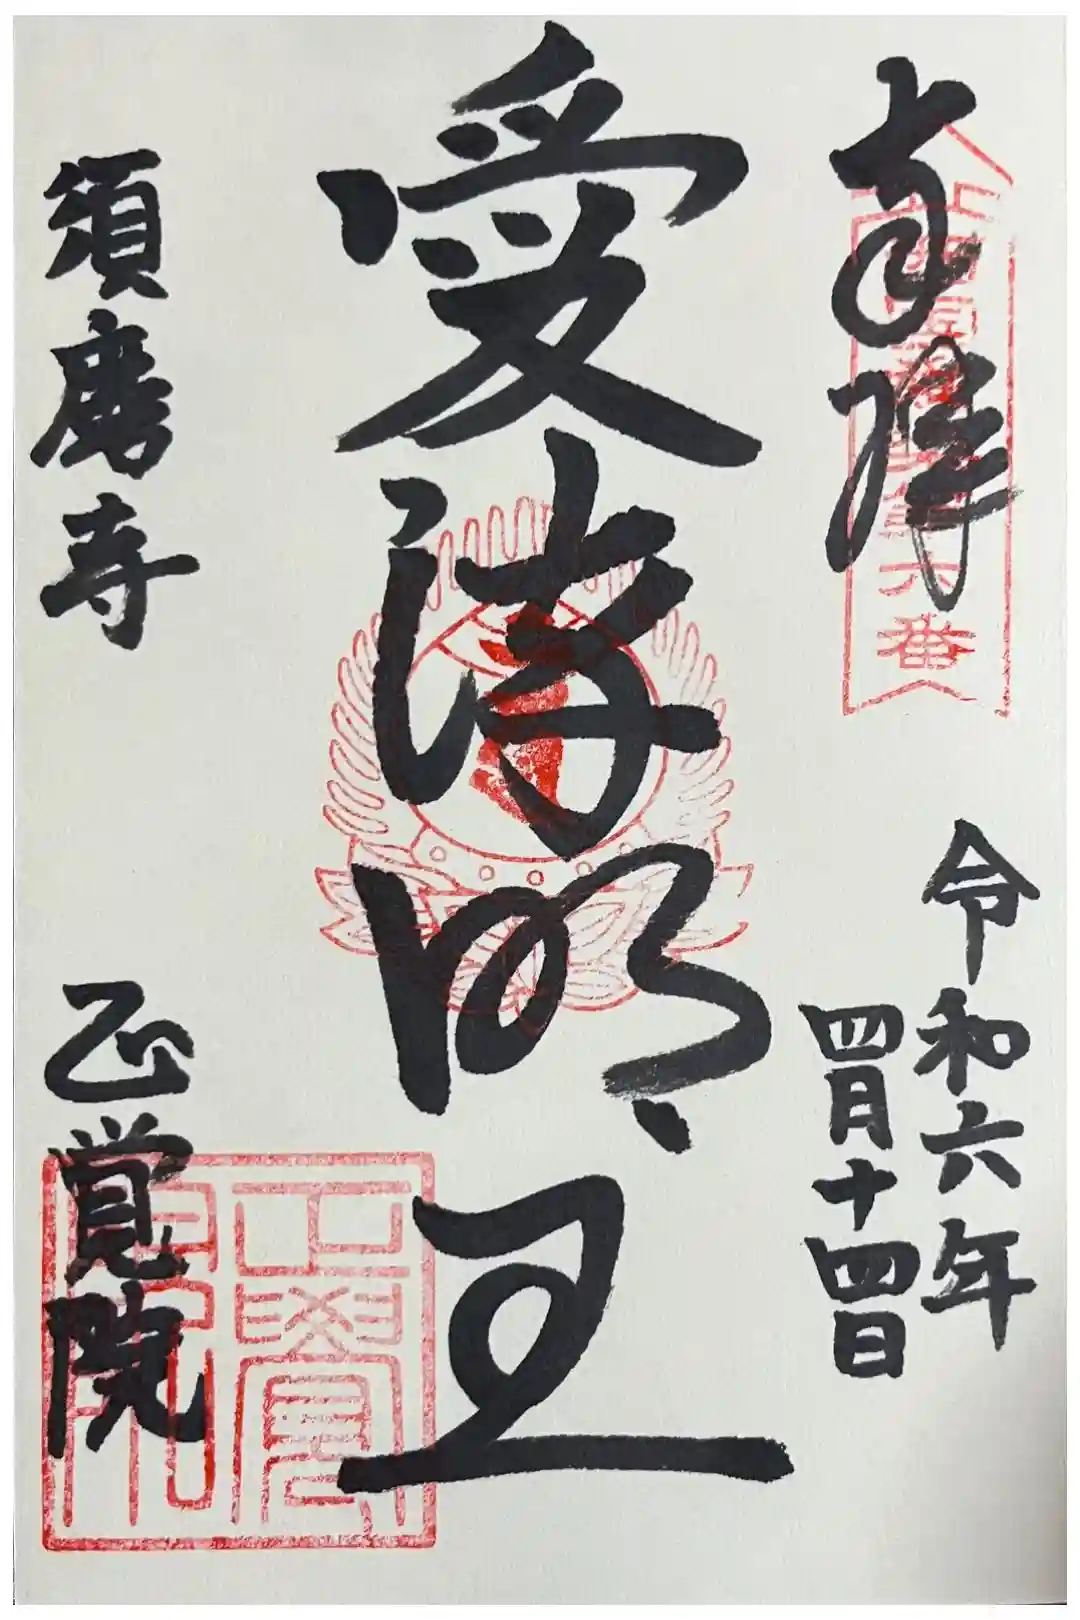 奉拝
六番
令和六年
四月十四日
愛染明王
須磨寺
正覚院
正覺院印